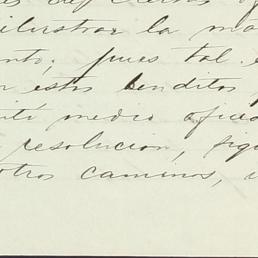 ilustrar la ma
ento; pues tal e
n estos benditos
ití medio ofici
resolucion, sigu
otros caminos, u